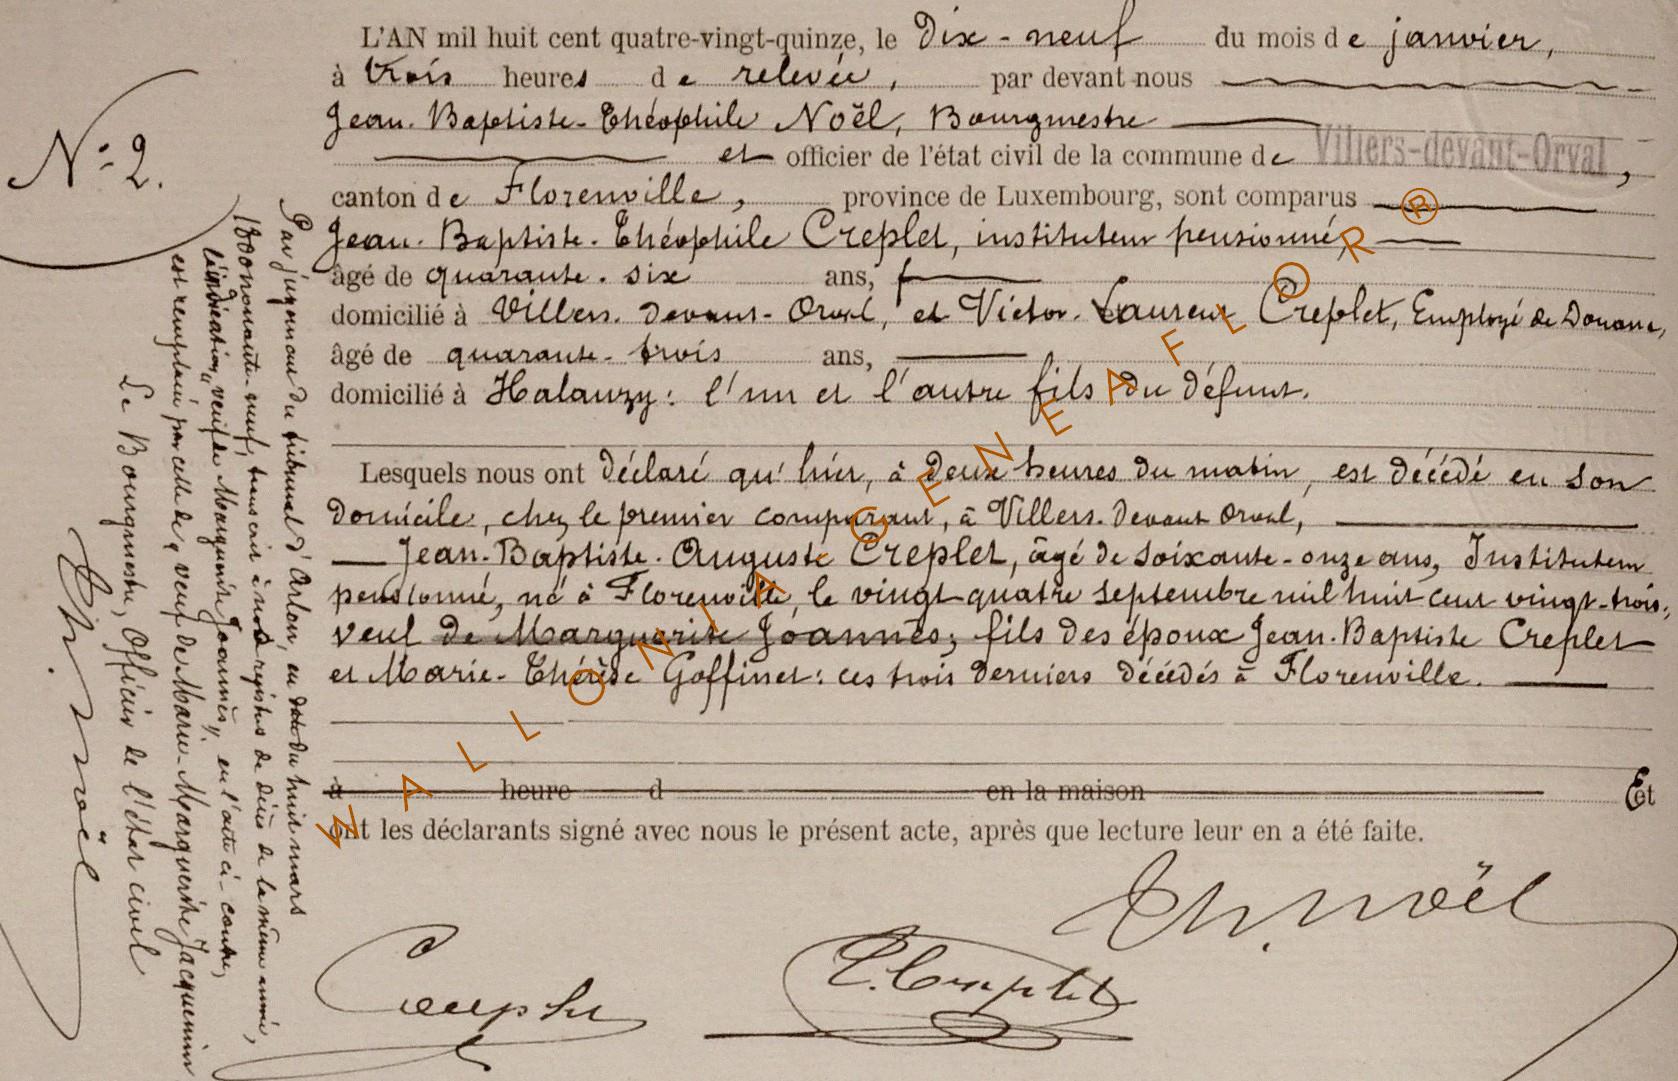 L'AN mil huit cent quatre-vingt-quinze, le dix-neuf du mois de janvier,
à trois heures de relevée, par devant nous
Jean-Baptiste-Théophile Noël, Bourgmestre
et officier de l'état civil de la commune de Villers-devant-Orval,
canton de Florenville, province de Luxembourg, sont comparus
Jean-Baptiste-Théophile Creplet, instituteur pensionné,
âgé de quarante-six ans,
domicilié à Villers-devant-Orval, et Victor-Laurent Creplet, Employé de Douane,
âgé de quarante-trois ans,
domicilié à Halanzy : l'un et l'autre fils du défunt.
Lesquels nous ont déclaré qu'hier, à deux heures du matin, est décédé en son
domicile, chez le premier comparant, à Villers-devant Orval,
Jean-Baptiste-Auguste Creplet, âgé de soixante-onze ans, Instituteur
pensionné, né à Florenville, le vingt-quatre septembre mil huit cent vingt-trois,
veuf de Marguerite Joannès; fils des époux Jean-Baptiste Creplet
et Marie-Thérèse Goffinet : ces trois derniers décédés à Florenville.
à heure d en la maison Et
ont les déclarants signé avec nous le présent acte, après que lecture leur en a été faite.
Th. Noël
Creplet
T. Creplet
N° 2.
Par jugement du tribunal d'Arlon, en date du huit mars
1800 nonante-neuf, transcrit registre de décès de la même année,
l'indication "veuf de Marguerite Joannès", en l'acte ci-contre,
est remplacé par celle de, veuf de Marie-Marguerite Jacquemin
Le Bourgmestre, Officier de l'état civil
Th. Noël
WALLONIA GENEAFLOR ®